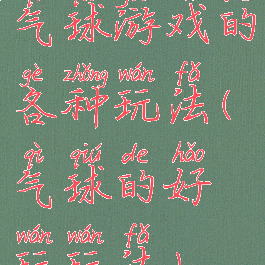 气球游戏的
gè zhǒng wán fǎ
各种玩法(
qì qiú de hǎo
气球的好
wán wán fǎ
玩玩法)